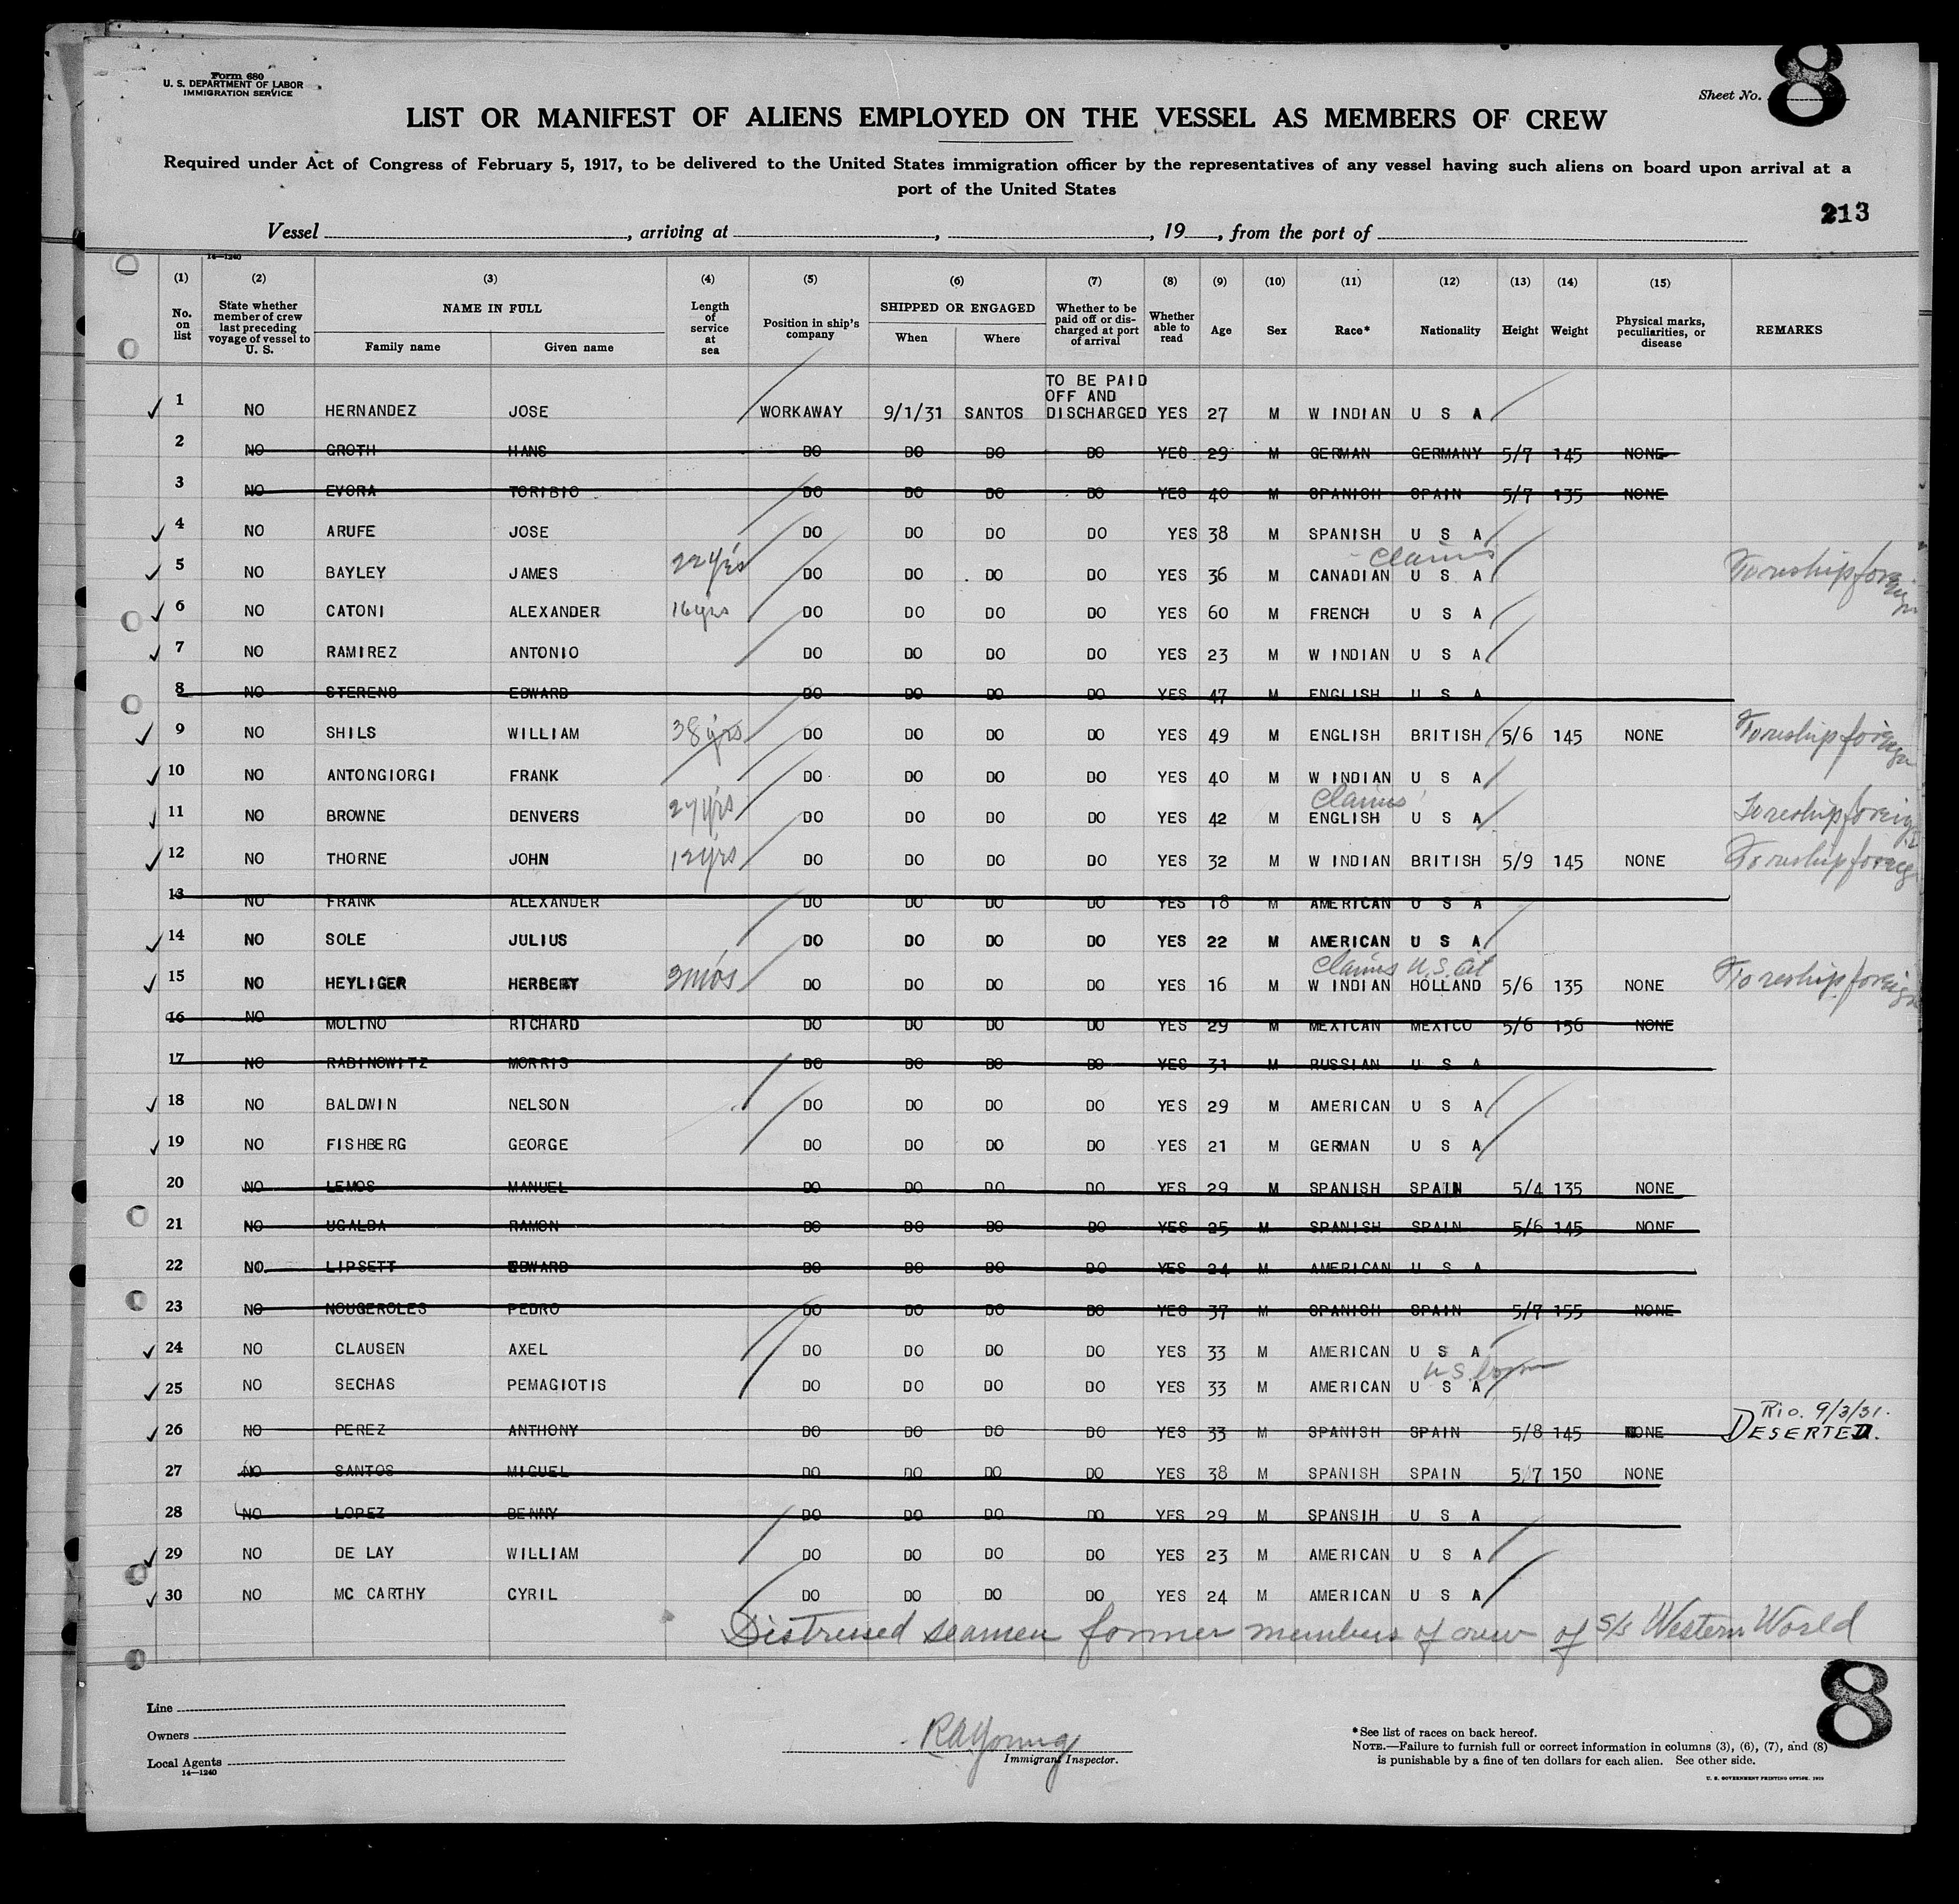 Form 680
U. S. DEPARTMENT OF LABOR
IMMIGRATION SERVICE
Sheet No. 8
LIST OR MANIFEST OF ALIENS EMPLOYED ON THE VESSEL AS MEMBERS OF CREW
Required under Act of Congress of February 5, 1917, to be delivered to the United States immigration officer by the representatives of any vessel having such aliens on board upon arrival at a
port of the United States
213
Vessel , arriving at , , 19 , from the port of
14—1240
(1) (2) (3) (4) (5) (6) (7) (8) (9) (10) (11) (12) (13) (14) (15)
No. on list State whether member of crew last preceding voyage of vessel to U. S. NAME IN FULL Family name Given name Length of service at sea Position in ship's company SHIPPED OR ENGAGED When Where Whether to be paid off or discharged at port of arrival Whether able to read Age Sex Race* Nationality Height Weight Physical marks, peculiarities, or disease REMARKS
TO BE PAID
OFF AND
1 NO HERNANDEZ JOSE WORKAWAY 9/1/31 SANTOS DISCHARGED YES 27 M W INDIAN U S A
2 NO GROTH HANS DO DO DO DO YES 29 M GERMAN GERMANY 5/7 145 NONE
3 NO EVORA TORIBIO DO DO DO DO YES 40 M SPANISH SPAIN 5/7 135 NONE
4 NO ARUFE JOSE DO DO DO DO YES 38 M SPANISH U S A
claims
5 NO BAYLEY JAMES 22 yrs DO DO DO DO YES 36 M CANADIAN U S A To reship foreign
6 NO CATONI ALEXANDER 16 yrs DO DO DO DO YES 60 M FRENCH U S A
7 NO RAMIREZ ANTONIO DO DO DO DO YES 23 M W INDIAN U S A
8 NO STERENS EDWARD DO DO DO DO YES 47 M ENGLISH U S A
9 NO SHILS WILLIAM 38 yrs DO DO DO DO YES 49 M ENGLISH BRITISH 5/6 145 NONE To reship foreign
10 NO ANTONGIORGI FRANK DO DO DO DO YES 40 M W INDIAN U S A
claims
11 NO BROWNE DENVERS 27 yrs DO DO DO DO YES 42 M ENGLISH U S A To reship foreign
12 NO THORNE JOHN 12 yrs DO DO DO DO YES 32 M W INDIAN BRITISH 5/9 145 NONE To reship foreign
13 NO FRANK ALEXANDER DO DO DO DO YES 18 M AMERICAN U S A
14 NO SOLE JULIUS DO DO DO DO YES 22 M AMERICAN U S A
claims U.S. cit
15 NO HEYLIGER HERBERT mos DO DO DO DO YES 16 M W INDIAN HOLLAND 5/6 135 NONE To reship foreign
16 NO MOLINO RICHARD DO DO DO DO YES 29 M MEXICAN MEXICO 5/6 156 NONE
17 NO RABINOWITZ MORRIS DO DO DO DO YES 31 M RUSSIAN U S A
18 NO BALDWIN NELSON DO DO DO DO YES 29 M AMERICAN U S A
19 NO FISHBERG GEORGE DO DO DO DO YES 21 M GERMAN U S A
20 NO LEMOS MANUEL DO DO DO DO YES 29 M SPANISH SPAIN 5/4 135 NONE
21 NO UGALDA RAMON DO DO DO DO YES 25 M SPANISH SPAIN 5/6 145 NONE
22 NO LIPSETT EDWARD DO DO DO DO YES 24 M AMERICAN U S A
23 NO NOUGEROLES PEDRO DO DO DO DO YES 37 M SPANISH SPAIN 5/7 155 NONE
24 NO CLAUSEN AXEL DO DO DO DO YES 33 M AMERICAN U S A
U.S. born
25 NO SECHAS PEMAGIOTIS DO DO DO DO YES 33 M AMERICAN U S A
Rio. 9/3/31.
26 NO PEREZ ANTHONY DO DO DO DO YES 33 M SPANISH SPAIN 5/8 145 NONE DESERTED.
27 NO SANTOS MIGUEL DO DO DO DO YES 38 M SPANISH SPAIN 5/7 150 NONE
28 NO LOPEZ BENNY DO DO DO DO YES 29 M SPANSIH U S A
29 NO DE LAY WILLIAM DO DO DO DO YES 23 M AMERICAN U S A
30 NO MC CARTHY CYRIL DO DO DO DO YES 24 M AMERICAN U S A
Distressed seamen former members of crew of S/S Western World
Line
Owners
Local Agents
14—1240
RA Young
Immigrant Inspector.
*See list of races on back hereof.
NOTE.—Failure to furnish full or correct information in columns (3), (6), (7), and (8)
is punishable by a fine of ten dollars for each alien. See other side.
U. S. GOVERNMENT PRINTING OFFICE. 1929
8